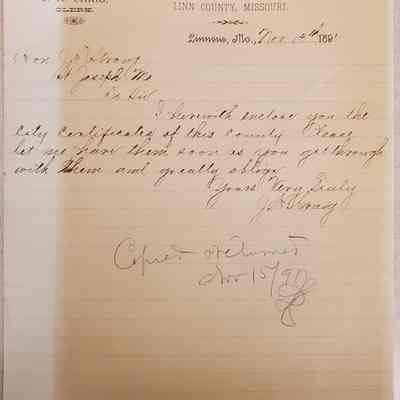 CLERK.
LINN COUNTY, MISSOURI.
Linneus, Mo., Nov 14th 1891
Hon.
St Joseph Mo
Dr Sir
I herewith enclose you the
city certificates of this county Please
let me have them soon as you get through
with them and greatly oblige
Yours Very Truly
Copied & returned
Nov 15/91